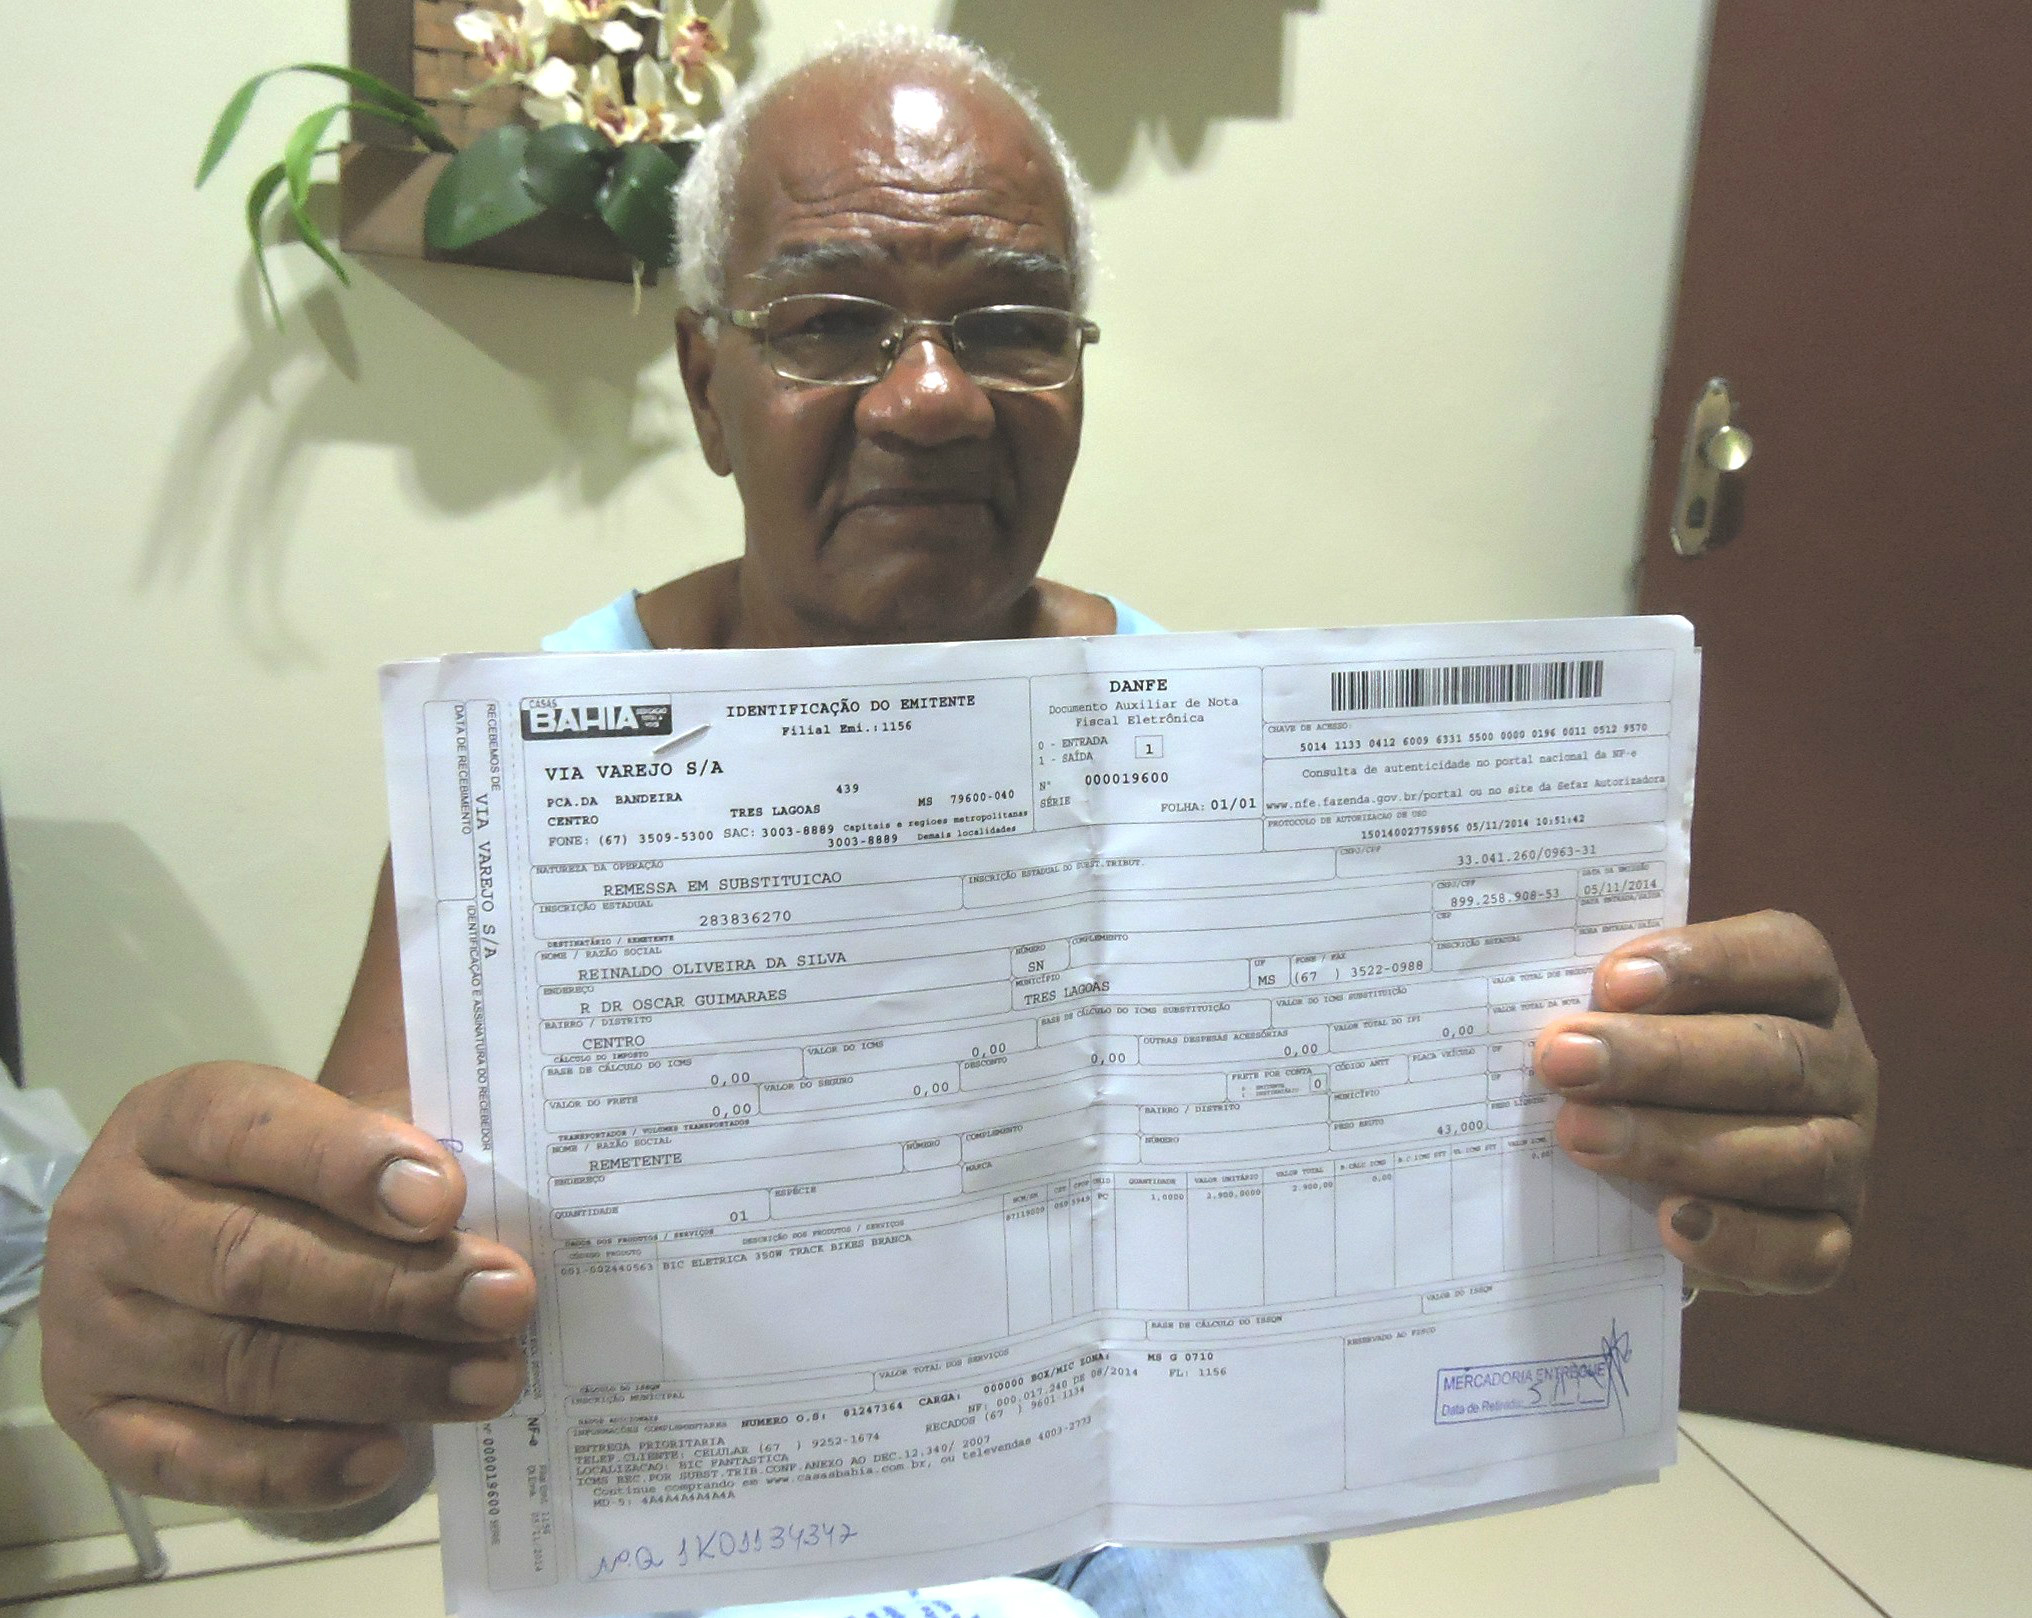 CASAS
BAHIA
IDENTIFICAÇÃO DO EMITENTE
Filial Emi.:1156
VIA VAREJO S/A
PCA.DA BANDEIRA 439
CENTRO TRES LAGOAS MS 79600-040
FONE: (67) 3509-5300 SAC: 3003-8889 Capitais e regioes metropolitanas
3003-8889 Demais localidades
DANFE
Documento Auxiliar de Nota
Fiscal Eletrônica
0 - ENTRADA
1 - SAÍDA
1
Nº 000019600
SÉRIE
FOLHA: 01/01
CHAVE DE ACESSO:
5014 1133 0412 6009 6331 5500 0000 0196 0011 0512 9570
Consulta de autenticidade no portal nacional da NF-e
www.nfe.fazenda.gov.br/portal ou no site da Sefaz Autorizadora
PROTOCOLO DE AUTORIZACAO DE USO
150140027759856 05/11/2014 10:51:42
NATUREZA DA OPERAÇÃO
REMESSA EM SUBSTITUICAO
INSCRIÇÃO ESTADUAL DO SUBST.TRIBUT.
CNPJ/CPF
33.041.260/0963-31
INSCRIÇÃO ESTADUAL
283836270
DESTINATÁRIO / REMETENTE
NOME / RAZÃO SOCIAL
REINALDO OLIVEIRA DA SILVA
NÚMERO
SN
COMPLEMENTO
CNPJ/CPF
899.258.908-53
DATA DA EMISSÃO
05/11/2014
CEP
DATA ENTRADA/SAÍDA
ENDEREÇO
R DR OSCAR GUIMARAES
MUNICÍPIO
TRES LAGOAS
UF
MS
FONE / FAX
(67 ) 3522-0988
INSCRIÇÃO ESTADUAL
HORA ENTRADA/SAÍDA
BAIRRO / DISTRITO
CENTRO
CÁLCULO DO IMPOSTO
BASE DE CÁLCULO DO ICMS
0,00
VALOR DO ICMS
0,00
BASE DE CÁLCULO DO ICMS SUBSTITUIÇÃO
0,00
VALOR DO ICMS SUBSTITUIÇÃO
VALOR TOTAL DOS
VALOR DO FRETE
0,00
VALOR DO SEGURO
0,00
DESCONTO
OUTRAS DESPESAS ACESSÓRIAS
0,00
VALOR TOTAL DO IPI
0,00
VALOR TOTAL DA NOTA
TRANSPORTADOR / VOLUMES TRANSPORTADOS
NOME / RAZÃO SOCIAL
REMETENTE
FRETE POR CONTA
0
CÓDIGO ANTT
PLACA VEÍCULO
UF
ENDEREÇO
NÚMERO
COMPLEMENTO
BAIRRO / DISTRITO
MUNICÍPIO
UF
QUANTIDADE
01
ESPÉCIE
MARCA
NÚMERO
PESO BRUTO
43,000
PESO LÍQUIDO
DADOS DOS PRODUTOS / SERVIÇOS
CÓDIGO PRODUTO
DESCRIÇÃO DOS PRODUTOS / SERVIÇOS
NCM/SH CST CFOP UNID QUANTIDADE VALOR UNITÁRIO VALOR TOTAL B.CÁLC ICMS
001-002440563 BIC ELETRICA 350W TRACK BIKES BRANCA
PC 1,0000 2.900,0000 2.900,00 0,00
CÁLCULO DO ISSQN
INSCRIÇÃO MUNICIPAL
VALOR TOTAL DOS SERVIÇOS
BASE DE CÁLCULO DO ISSQN
VALOR DO ISSQN
DADOS ADICIONAIS
INFORMAÇÕES COMPLEMENTARES
NUMERO O.S: 81247364 CARGA: 000000 BOX/MIC ZONA: MS G 0710
NF: 000.017.240 DE 08/2014 FL: 1156
ENTREGA PRIORITARIA
TELEF.CLIENTE: CELULAR (67 ) 9252-1674 RECADOS (67 ) 9601-1334
LOCALIZACAO: BIC FANTASTICA
ICMS REC.POR SUBST.TRIB.CONF.ANEXO AO DEC.12.340/ 2007
Continue comprando em www.casasbahia.com.br, ou televendas 4003-2773
MD-5: 4A4A4A4A4A4A
RESERVADO AO FISCO
MERCADORIA ENTREGUE
Data de Retirada:
1K01134342
RECEBEMOS DE VIA VAREJO S/A
DATA DE RECEBIMENTO
IDENTIFICAÇÃO E ASSINATURA DO RECEBEDOR
NF-e
Nº 000019600 SÉRIE